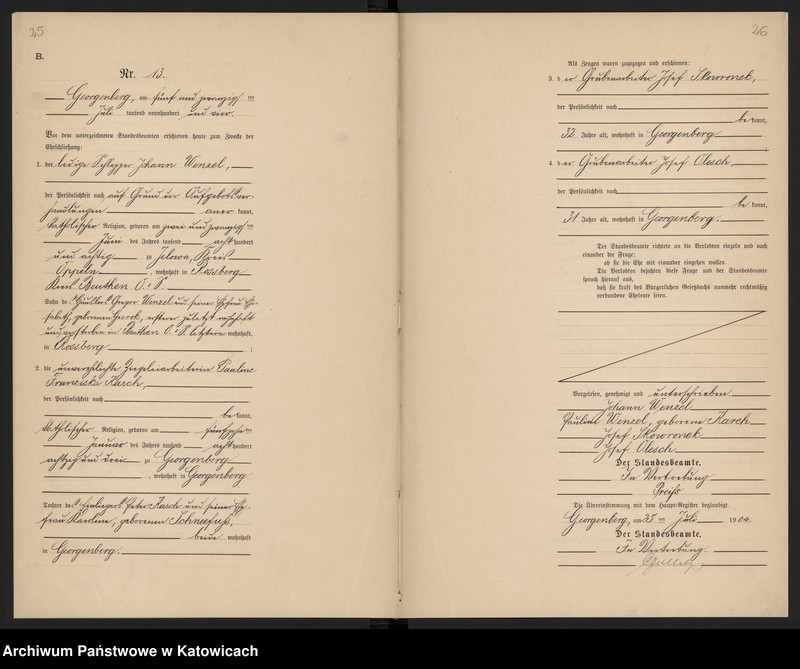 25
B.
Nr. 13.
Georgenberg, am fünf und zwanzig ten
Juli tausend neunhundert und vier.
Vor dem unterzeichneten Standesbeamten erschienen heute zum Zwecke der
Eheschließung:
1. der ledige Schlepper Johann Wenzel,
der Persönlichkeit nach auf Grund der Aufgebotsver-
handlungen aner kannt,
katholischer Religion, geboren am zwei und zwanzig ten
Juni des Jahres tausend acht hundert
und achtzig zu Jelowa, Kreis
Oppeln, wohnhaft in Rossberg
Kreis Beuthen O.-S.
Sohn des Häuslers Gregor Wenzel und seiner Ehefrau Eli-
sabeth, geborenen, ersterer zuletzt wohnhaft
und verstorben in Beuthen O.-S. letztere wohnhaft
in Rossberg ;
2. die unverehelichte Ziegeleiarbeiterin Pauline
Franziska Karch,
der Persönlichkeit nach
be kannt,
katholischer Religion, geboren am fünfzehn ten
Januar des Jahres tausend acht hundert
achtzig und drei zu Georgenberg
, wohnhaft in Georgenberg
Tochter des Einliegers Peter Karch und seiner Ehe-
frau Karoline, geborenen Schneefuß,
beide wohnhaft
in Georgenberg.
26
Als Zeugen waren zugezogen und erschienen:
3. d er Grubenarbeiter Josef Skowronek,
der Persönlichkeit nach
be kannt,
32 Jahre alt, wohnhaft in Georgenberg ;
4. d er Grubenarbeiter Josef Olesch,
der Persönlichkeit nach
be kannt,
31 Jahre alt, wohnhaft in Georgenberg.
Der Standesbeamte richtete an die Verlobten einzeln und nach
einander die Frage:
ob sie die Ehe mit einander eingehen wollen.
Die Verlobten bejahten diese Frage und der Standesbeamte
sprach hierauf aus,
daß sie kraft des Bürgerlichen Gesetzbuchs nunmehr rechtmäßig
verbundene Eheleute seien.
Vorgelesen, genehmigt und unterschrieben
Johann Wenzel
Pauline Wenzel, geborene Karch
Josef Skowronek
Josef Olesch
Der Standesbeamte.
In Vertretung
Preiß
Die Übereinstimmung mit dem Haupt-Register beglaubigt
Georgenberg, am 25 ten Juli 1904.
Der Standesbeamte.
In Vertretung
Archiwum Państwowe w Katowicach